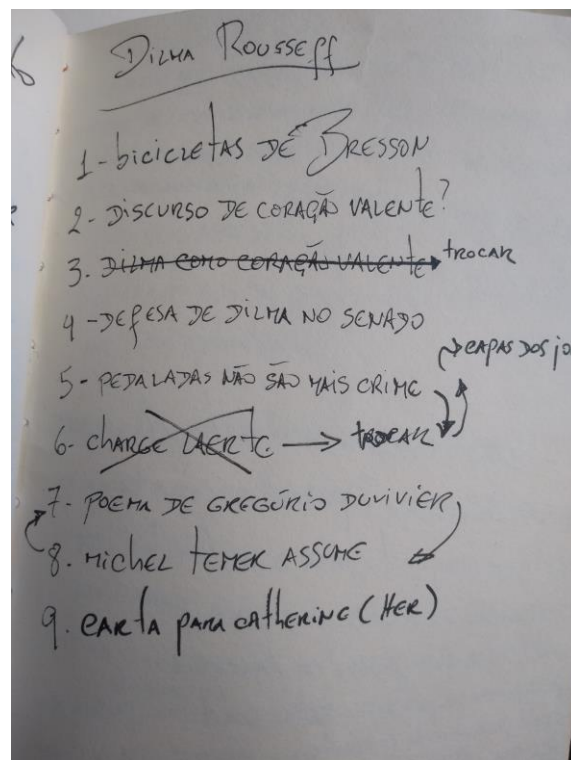 Dilma Rousseff
1 - bicicletas de Bresson
2 - DISCURSO DE CORAÇÃO VALENTE?
3. DILMA COMO CORAÇÃO VALENTE → trocar
4 - DEFESA DE DILMA NO SENADO
→ CAPAS DOS JO
5 - PEDALADAS NÃO SÃO MAIS CRIME
6 - CHARGE LAERTE → trocar
7 - POEMA DE GREGÓRIO DUVIVIER
8. MICHEL TEMER ASSUME
9. CARTA PARA CATHERINE (HER)